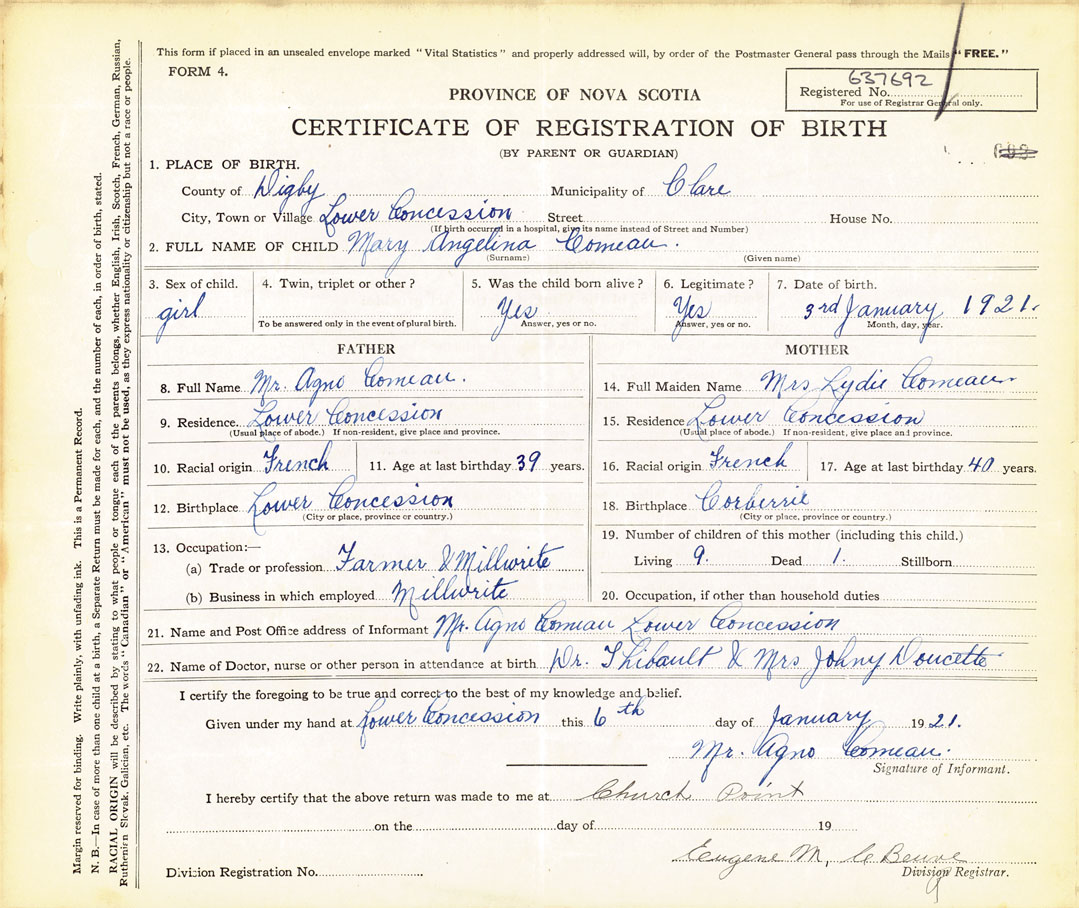 This form if placed in an unsealed envelope marked "Vital Statistics" and properly addressed will, by order of the Postmaster General pass through the Mails "FREE."
FORM 4.
637692
Registered No.
For use of Registrar General only.
PROVINCE OF NOVA SCOTIA
CERTIFICATE OF REGISTRATION OF BIRTH
(BY PARENT OR GUARDIAN)
1. PLACE OF BIRTH.
County of Digby Municipality of Clare
City, Town or Village Lower Concession Street House No.
(If birth occurred in a hospital, give its name instead of Street and Number)
2. FULL NAME OF CHILD Mary Angelina Comeau.
(Surname) (Given name)
3. Sex of child. 4. Twin, triplet or other? 5. Was the child born alive? 6. Legitimate? 7. Date of birth.
girl Yes Yes 3rd January 1921.
To be answered only in the event of plural birth. Answer, yes or no. Answer, yes or no. Month, day, year.
FATHER
8. Full Name Mr. Agno Comeau.
9. Residence. Lower Concession
(Usual place of abode.) If non-resident, give place and province.
10. Racial origin French 11. Age at last birthday 39 years.
12. Birthplace Lower Concession
(City or place, province or country.)
13. Occupation:—
(a) Trade or profession Farmer & Millwrite
(b) Business in which employed Millwrite
MOTHER
14. Full Maiden Name Mrs Lydie Comeau
15. Residence Lower Concession
(Usual place of abode.) If non-resident, give place and province.
16. Racial origin French 17. Age at last birthday 40 years.
18. Birthplace Corberrie
(City or place, province or country.)
19. Number of children of this mother (including this child.)
Living 9. Dead 1. Stillborn
20. Occupation, if other than household duties
21. Name and Post Office address of Informant Mr. Agno Comeau Lower Concession
22. Name of Doctor, nurse or other person in attendance at birth Dr. Thibault & Mrs Johny Doucette
I certify the foregoing to be true and correct to the best of my knowledge and belief.
Given under my hand at Lower Concession this 6th day of January 1921.
Mr. Agno Comeau.
Signature of Informant.
I hereby certify that the above return was made to me at Church Point
on the day of 19
Eugene M. Le
Division Registrar.
Division Registration No.
Margin reserved for binding. Write plainly, with unfading ink. This is a Permanent Record.
N. B.—In case of more than one child at a birth, a Separate Return must be made for each, and the number of each, in order of birth, stated.
RACIAL ORIGIN will be described by stating to what people or tongue each of the parents belongs, whether English, Irish, Scotch, French, German, Russian,
Ruthenian Slovak, Galician, etc. The words "Canadian" or "American" must not be used, as they express nationality or citizenship but not a race or people.